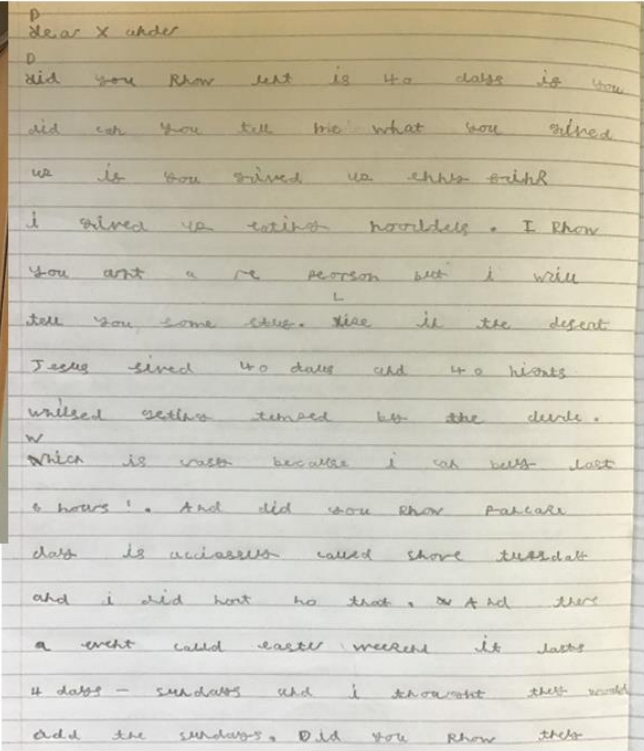 D
dear X ander
D
did you Rhow lent is 40 days is you
did can you tell me what you gived
up is you gived up
i gived up eating noorddels. I Rhow
you arnt a re peorson but i will
L
tell you some stus. like in the desert
Jesus sived 40 days and 40 hights
whilsed getting temsed by the devile.
W
which is crasy because i can bely last
6 hours!. And did you Rhow pancake
day is acciassuly called shove tuesday
and i did hont no that. And there
a event called easter weekend it lasts
4 days - sundays and i thought they would
add the sundays. Did you Rhow they